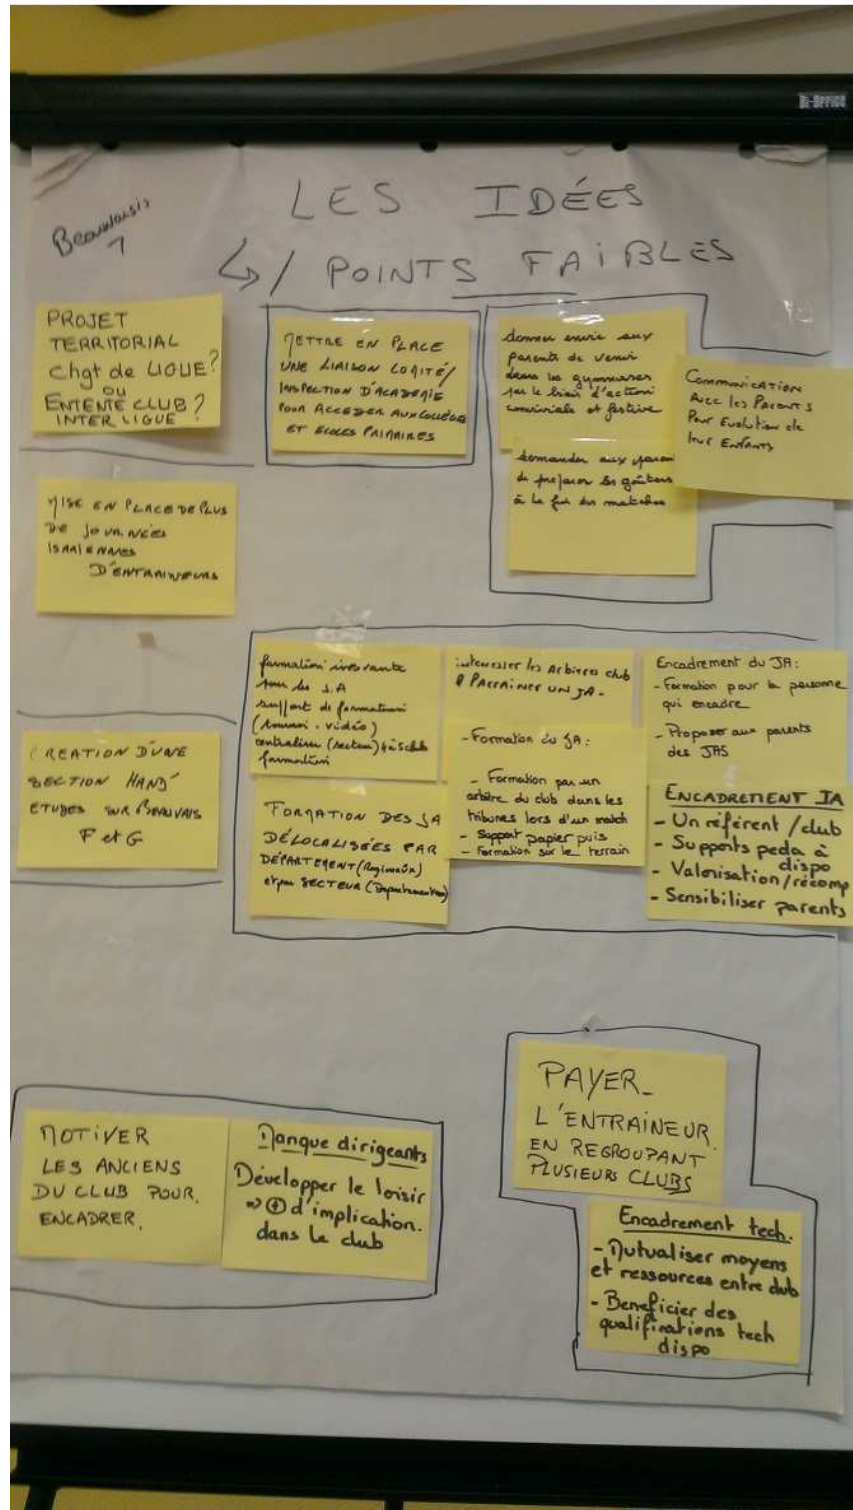 Bi-Office
Beauvaisis
1
LES IDÉES
↳ / POINTS FAIBLES
PROJET
TERRITORIAL
Chgt de LIGUE?
OU
ENTENTE CLUB?
INTER LIGUE
METTRE EN PLACE
UNE LIAISON COMITÉ/
INSPECTION D'ACADEMIE
POUR ACCEDER AUX COLLÈGES
ET ECOLES PRIMAIRES
donner envie aux
parents de venir
dans les gymnases
par le biais d'action
conviviale et festive
Communication
Avec les Parents
Pour Evolution de
leur Enfants
demander aux
de préparer les goûters
à la fin des matches
MISE EN PLACE DE PLUS
DE JOURNÉES
D'ENTRAINEURS
formation
sur les J.A
support de formation
(vidéo)
centraliser (secteur) 4 à 5 clubs
formation
interesser les Arbitres club
à PARRAINER UN JA.
Encadrement du JA:
- Formation pour la personne
qui encadre
- Proposer aux parents
des JAS
- Formation du JA:
- Formation par un
arbitre du club dans les
tribunes lors d'un match
- Support papier puis
- Formation sur le terrain
CREATION D'UNE
SECTION HAND
ETUDES SUR BEAUVAIS
F et G
FORMATION DES JA
DÉLOCALISÉES PAR
DÉPARTEMENT (Régionaux)
et par SECTEUR (Departementaux)
ENCADREMENT JA
- Un référent / club
- Supports peda à
dispo
- Valorisation/récomp
- Sensibiliser parents
MOTIVER
LES ANCIENS
DU CLUB POUR
ENCADRER.
Manque dirigeants
Développer le loisir
⇒ ⊕ d'implication.
dans le club
PAYER_
L'ENTRAINEUR
EN REGROUPANT
PLUSIEURS CLUBS
Encadrement tech.
- Mutualiser moyens
et ressources entre club
- Beneficier des
qualifications tech
dispo